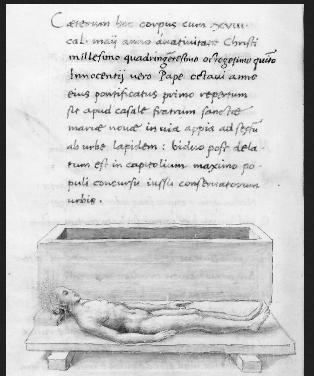 Cæterum hoc corpus cum xcviii
cal. maij anno a nativitate Christi
millesimo quadringentesimo octogesimo quinto
Innocentij vero Pape octavi anno
eius pontificatus primo repertum
sit apud casale fratrum sanctæ
mariæ novæ in via appia ad sextū
ab urbe lapidem : biduo post dela-
tum est in capitolium maximo po-
puli concursu iussu conservatorum
urbis .